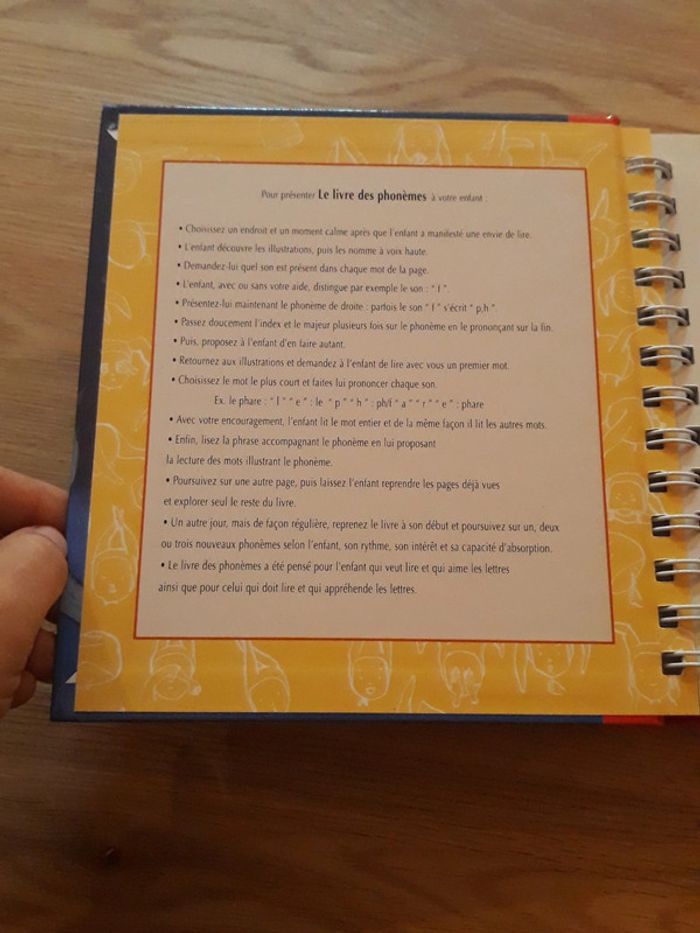 Pour présenter Le livre des phonèmes à votre enfant :
• Choisissez un endroit et un moment calme après que l'enfant a manifesté une envie de lire.
• L'enfant découvre les illustrations, puis les nomme à voix haute.
• Demandez-lui quel son est présent dans chaque mot de la page.
• L'enfant, avec ou sans votre aide, distingue par exemple le son : " f ".
• Présentez-lui maintenant le phonème de droite : parfois le son " f " s'écrit " p,h ".
• Passez doucement l'index et le majeur plusieurs fois sur le phonème en le prononçant sur la fin.
• Puis, proposez à l'enfant d'en faire autant.
• Retournez aux illustrations et demandez à l'enfant de lire avec vous un premier mot.
• Choisissez le mot le plus court et faites lui prononcer chaque son.
Ex. le phare : " l " " e " : le " p " " h " : ph/f " a " " r " " e " : phare
• Avec votre encouragement, l'enfant lit le mot entier et de la même façon il lit les autres mots.
• Enfin, lisez la phrase accompagnant le phonème en lui proposant
la lecture des mots illustrant le phonème.
• Poursuivez sur une autre page, puis laissez l'enfant reprendre les pages déjà vues
et explorer seul le reste du livre.
• Un autre jour, mais de façon régulière, reprenez le livre à son début et poursuivez sur un, deux
ou trois nouveaux phonèmes selon l'enfant, son rythme, son intérêt et sa capacité d'absorption.
• Le livre des phonèmes a été pensé pour l'enfant qui veut lire et qui aime les lettres
ainsi que pour celui qui doit lire et qui appréhende les lettres.